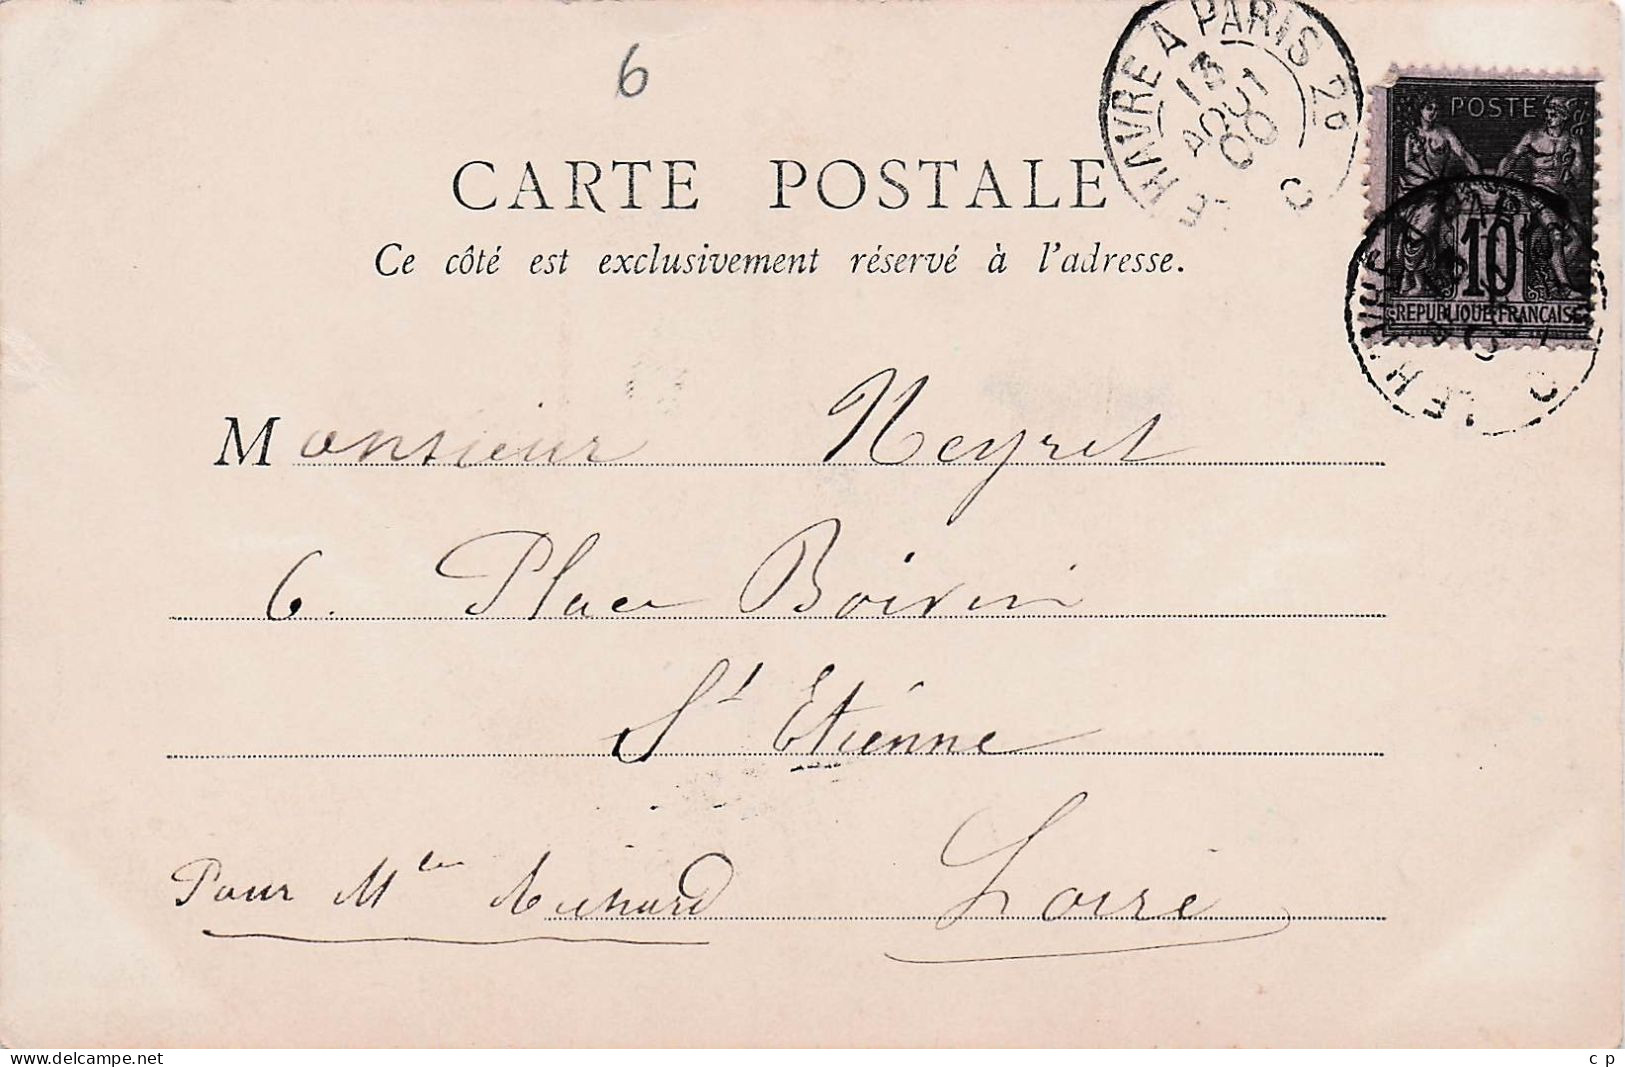 6
LE HAVRE A PARIS 2º
13
AOU
00
POSTE
10
REPUBLIQUE FRANÇAISE
LE H
CARTE POSTALE
Ce côté est exclusivement réservé à l'adresse.
Monsieur Neyret
6. Place Boivin
St Etienne
Loire
Pour Mlle Richard
www.delcampe.net
c p